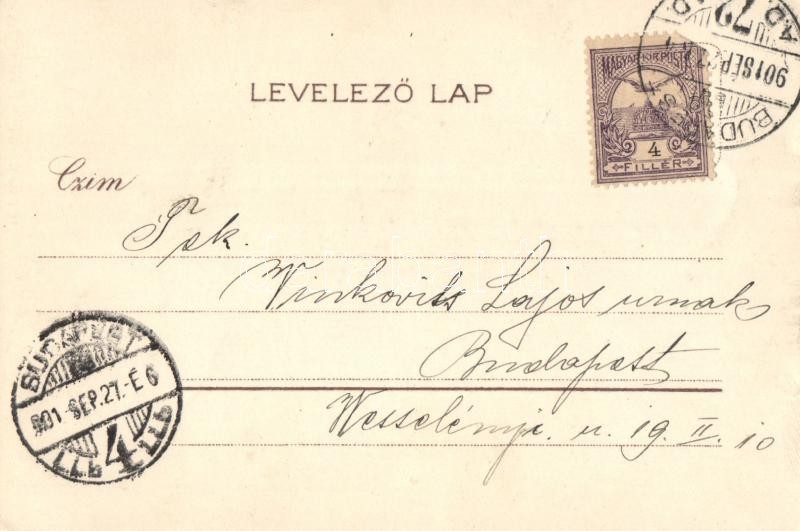 LEVELEZŐ LAP
MAGYAR KIR. POSTA
4
FILLÉR
901 SEP. 27
BUD
72
Czim
Tek.
Vinkovits Lajos urnak
Budapest
Wesselényi u. 19. II. 10
BUDAPEST
901 SEP. 27. É 6
4